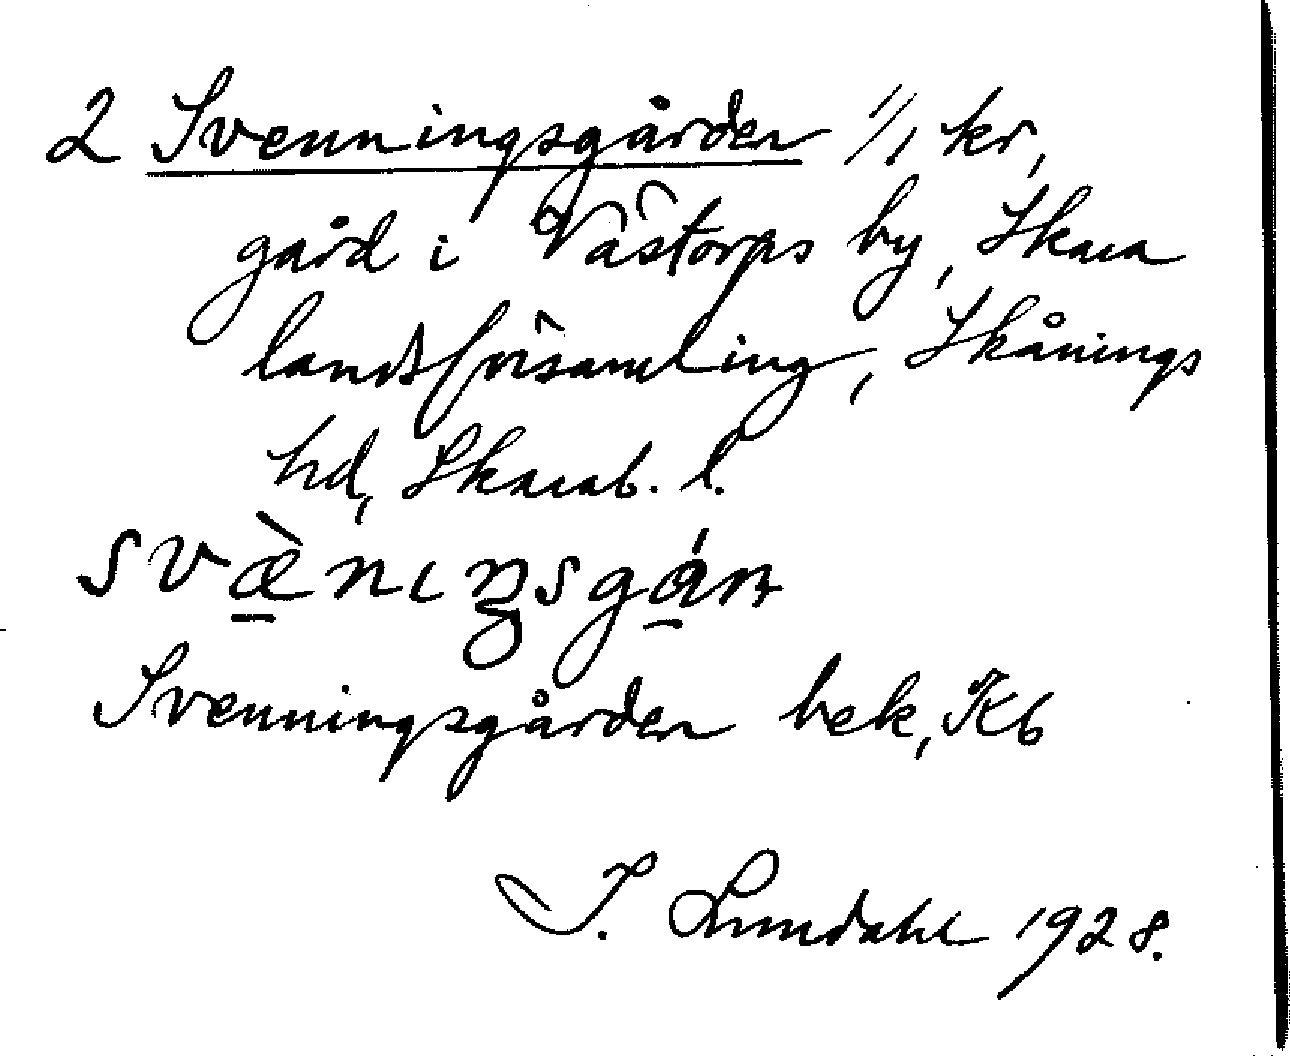 2 Svenningsgården 1/1 kr,
gård i Västorps by, Skara
landsförsamling, Skånings
hd, Skarab. l.
svæ̠̀nıŋsgá̠ɳ
Svenningsgården bek, Kb
I. Lundahl 1928.